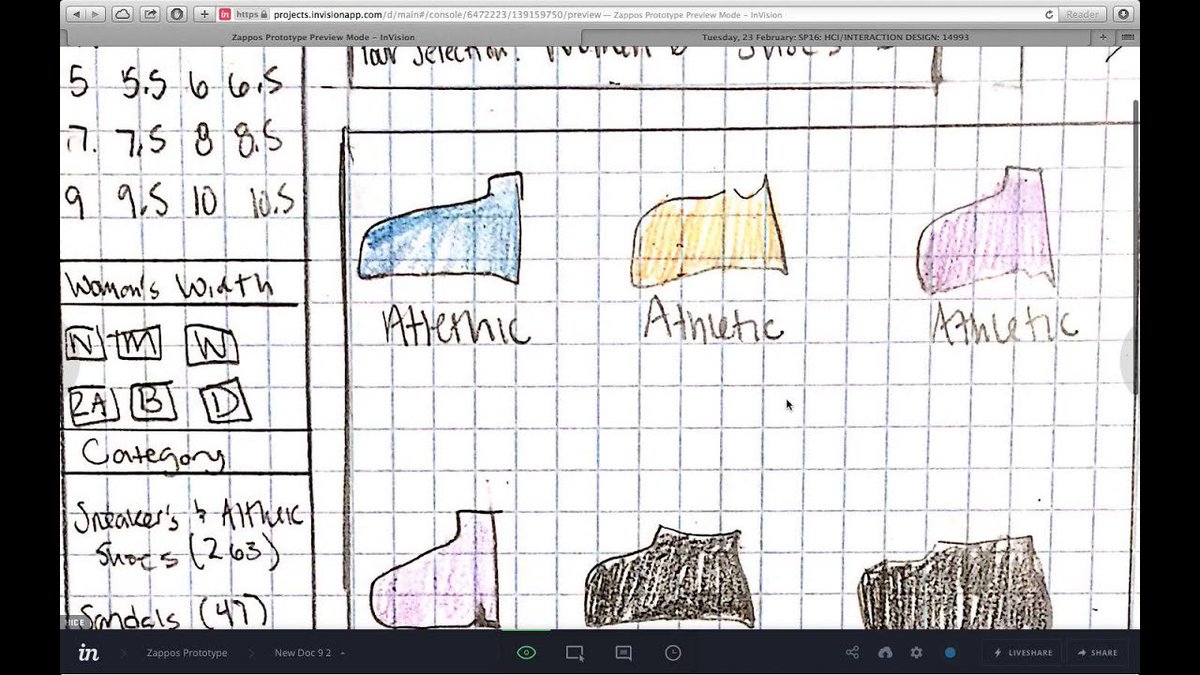 https projects.invisionapp.com/d/main#/console/6472223/139159750/preview — Zappos Prototype Preview Mode – InVision
Reader
Zappos Prototype Preview Mode – InVision
Tuesday, 23 February: SP16: HCI/INTERACTION DESIGN: 14993
Your Selection: Women's Shoes
5 5.5 6 6.5
7. 7.5 8 8.5
9 9.5 10 10.5
Women's Width
N M W
2A B D
Category
Sneaker's & Althleic
Shoes (263)
Sandals (47)
Athethic
Athletic
Athletic
HIDE
in
Zappos Prototype
New Doc 9 2
LIVESHARE
SHARE